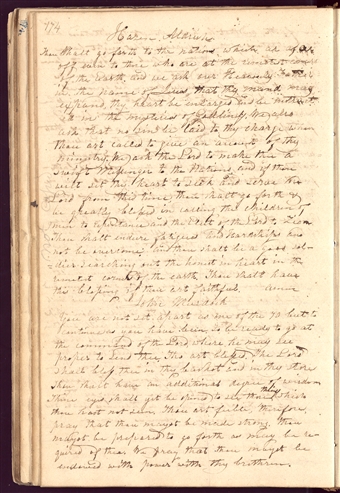 174
Hazen Aldrich
Thou shalt go forth to the nations which are afar
off even to those who are at the remotest
of the Earth, and we ask our Heavenly Father
in the name of Jesus, that thy mind may
expand, thy heart be enlarged to be
in the mysteries of Godliness, We also
ask that no sin be laid to thy charge when
thou art called to give an account of thy
ministry, We ask the Lord to make thee a
Messenger to the Nations, and if thou
wilt set thy heart to seek and serve the
Lord from this time, thou shalt go forth &
be greatly blessed in calling the children of
men to repentance and the of the Lord to Zion
Thou shalt endure fatigues & hardships and
not be overcome, and thou shalt be a Good sol-
dier searching out the honest in heart in the
corners of the earth Thou shalt have
this blessing if thou art faithful. Amen
John Murdock
You are not set apart as one of the 70 but to
continue as you have been, to be ready to go at
the command of the Lord where he may see
proper to send thee, Tho art blessed. The Lord
shall bless thee in thy basket and in thy store
Thou shalt have an additional degree of wisdom
Thine eyes shall yet be opened to see things which
thou hast not seen, thou art feeble, therefore,
pray that thou mayst be made strong, thou
mayst be prepared to go forth as may be re-
quired of thee We pray that thou mayst be
endowed with power with thy brethren